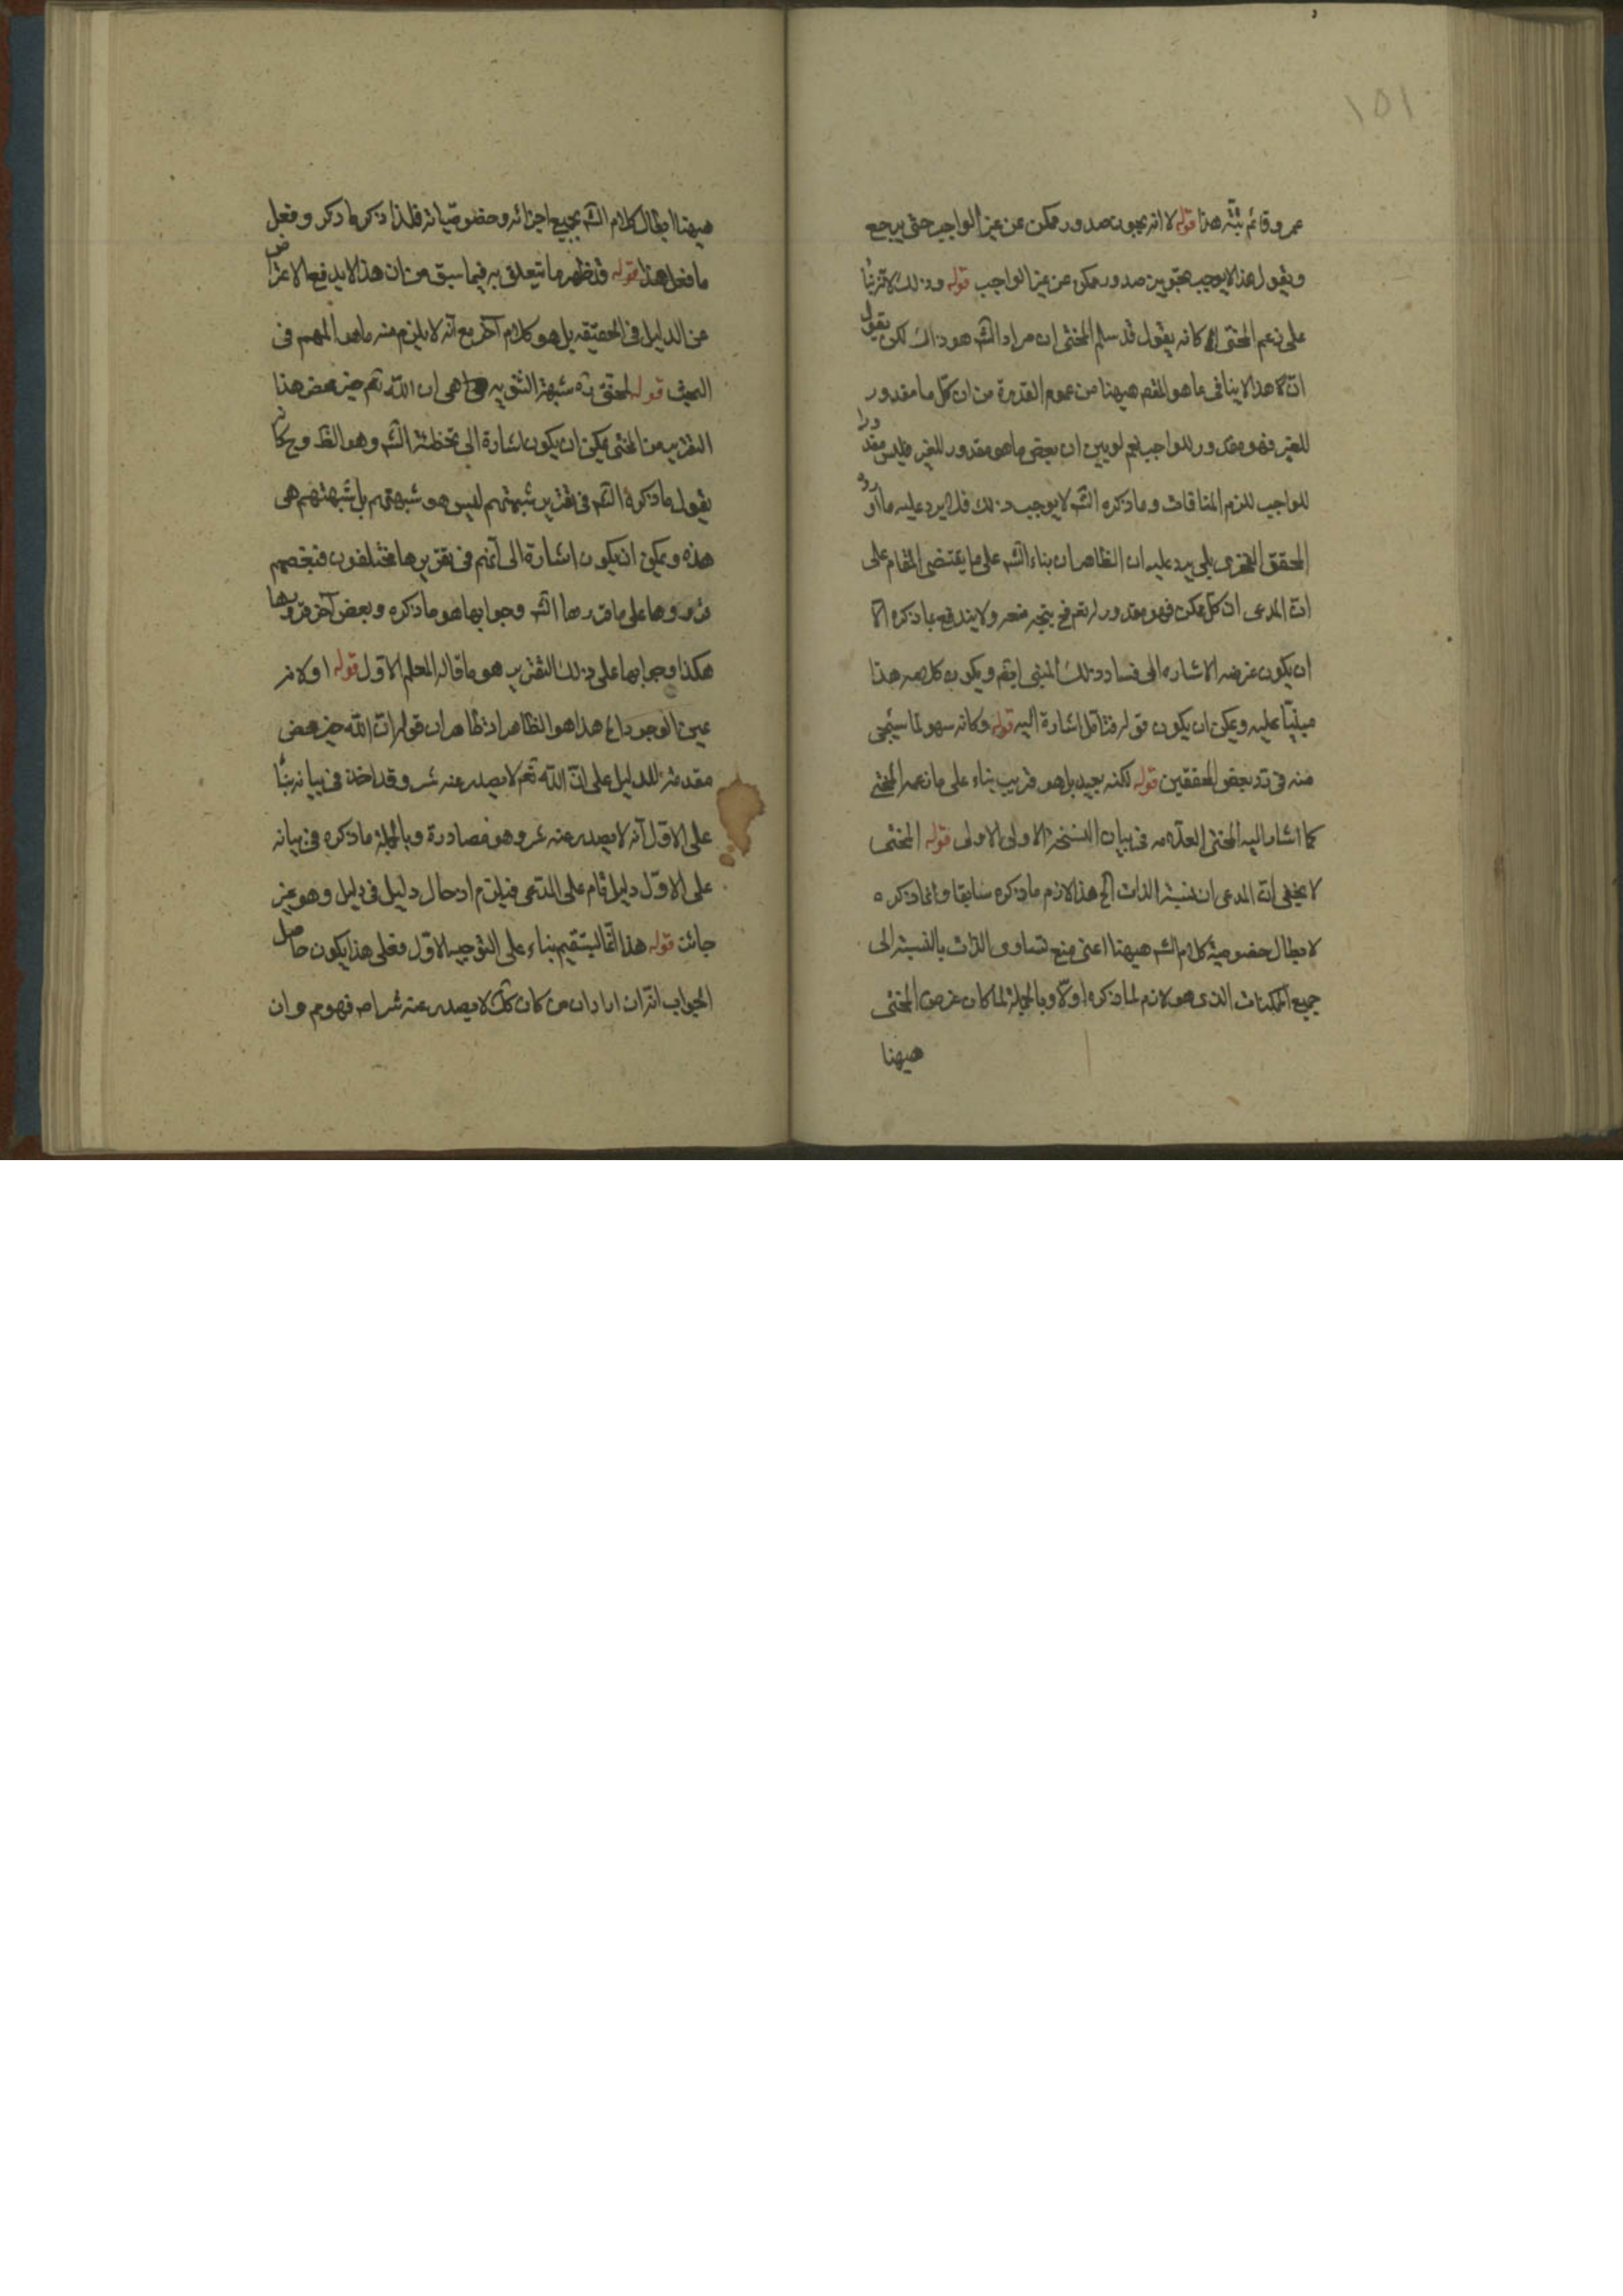 ١٥١
عمرو قائم تنبّه هذا قوله لا انه يجوز صدور ممكن عن غير الواجب حتى يرجع
ويقول هذا لا يوجب تجويز صدور ممكن عن غير الواجب قوله وذلك لا
على زعم المحشى كانه يقول قد سلم المحشى ان مراد الشه هو ذاك لكن يقول
انّ هذا لا ينافى ما هو المقص هيهنا من عموم القدرة من ان كلّ ما مقدور
للغير فهو مقدور للواجب نعم لو يبين ان بعض ما هو مقدور للغير فليس مقدورا
للواجب للزم المنافات وما ذكره الشه لا يوجب ذلك فلا يرد عليه ما اورد
المحقق الفخرى بلى يرد عليه ان الظاهر ان بناء الشه على ما يقتضى المقام على
انّ المدعى ان كلّ ممكن فهو مقدور له تعم فح يتجه منعه ولا يندفع بما ذكره الّا
ان يكون غرضه الاشاره الى فساد ذلك المبنى ايضم ويكون كلامه هذا
مبنيّا عليه ويمكن ان يكون قوله فتامّل اشارة اليه قوله وكانه سهو لما سيجئ
منه فى رد بعض المحققين قوله لكنه بعيد بل هو قريب بناء على ما زعمه المحشى
كما اشار اليه المحشى العلّامه فى بيان النسخة الاولى الاولى قوله المحشى
لا يخفى انّ المدعى ان نسبة الذات الخ هذا لازم ما ذكره سابقا وانما ذكره
لابطال خصوصية كلام الشه هيهنا اعنى منع تساوى الذات بالنسبة الى
جميع الممكنات الذى هو لازم لما ذكره اوّلا وبالجملة لما كان غرض المحشى
هيهنا
هيهنا ابطال كلام الشه بجميع اجزائه وخصوصيّاته فلذا ذكر ما ذكر وفعل
ما فعل هذا قوله قد ظهر ما يتعلق به فيما سبق من ان هذا لا يدفع الاعتراض
عن الدليل فى الحقيقه بل هو كلام آخر مع انّه لا يلزم منه ما هو المهم فى
البحث قوله المحشى ره شبهة الثنويه هى ان اللّه تعم خير محض هذا
التقرير من المحشى يمكن ان يكون اشارة الى تخطئة الشه وهو الظ وح كانه
يقول ما ذكره الشه فى تقرير شبهتهم ليس هو شبهتهم بل شبهتهم هى
هذه ويمكن ان يكون اشارة الى انّهم فى تقريرها مختلفون فبعضهم
قرروها على ما قررها الشه وجوابها هو ما ذكره وبعض آخر قرروها
هكذا وجوابها على ذلك التقرير هو ما قاله المعلم الاوّل قوله اولا انه
عين الوجود اه هذا هو الظاهر اذ ظاهر ان قوله انّ اللّه خير محض
مقدمة للدليل على انّ اللّه تعم لا يصدر عنه شر وقد اخذ فى بيانه بناءً
على الاوّل انّه لا يصدر عنه شر وهو مصادرة وبالجملة ما ذكره فى بيانه
على الاوّل دليل قام على المدّعى فيلزم ادخال دليل فى دليل وهو غير
جائز قوله هذا انّما يستقيم بناء على التوجيه الاوّل فعلى هذا يكون حاصل
الجواب انّه ان اراد ان من كان كك لا يصدر عنه شر اصه فهو مم وان